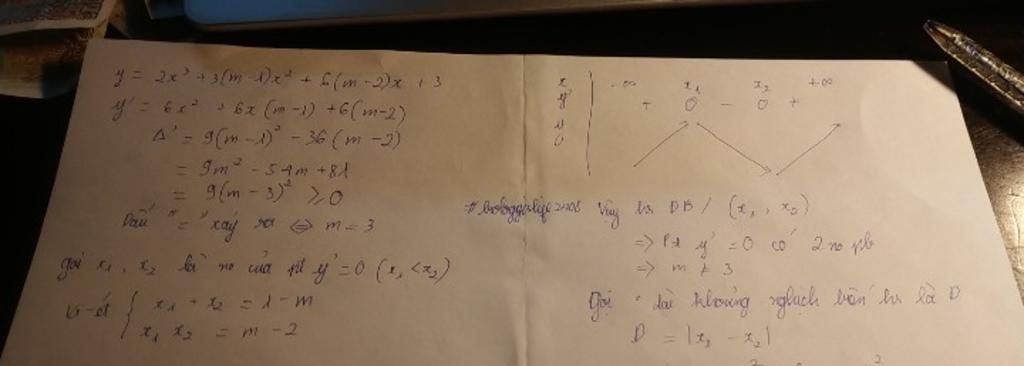 y = 2x³ + 3(m-1)x² + 6(m-2)x + 3
y' = 6x² + 6x(m-1) + 6(m-2)
Δ' = 9(m-1)² - 36(m-2)
= 9m² - 54m + 81
= 9(m-3)² ≥ 0
Dấu "=" xảy ra ⇔ m = 3
gọi x₁, x₂ là no của pt y' = 0 (x₁ < x₂)
Vi-ét { x₁ + x₂ = 1 - m
x₁ x₂ = m - 2
x -∞ x₁ x₂ +∞
y' + 0 - 0 +
y
0
Vậy hs ĐB / (x₁, x₂)
⇒ Pt y' = 0 có 2 no pb
⇒ m ≠ 3
Gọi dài khoảng nghịch biến hs là D
D = |x₁ - x₂|